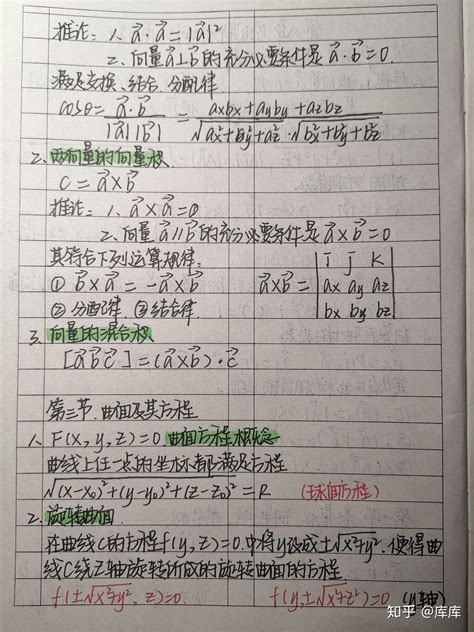 推论：1、a⃗·a⃗=|a⃗|²
2、向量a⃗⊥b⃗的充分必要条件是a⃗·b⃗=0.
满足交换、结合、分配律
cosθ = a⃗·b⃗ / |a⃗||b⃗| = axbx+ayby+azbz / √(ax²+ay²+az²)·√(bx²+by²+bz²)
2、两向量的向量积.
C=a⃗×b⃗
推论：1、a⃗×a⃗=0
2、向量a⃗∥b⃗的充分必要条件是a⃗×b⃗=0
其符合下列运算规律：
① b⃗×a⃗=-a⃗×b⃗ a⃗×b⃗= | i j k |
② 分配律 ③结合律 | ax ay az |
| bx by bz |
3、向量的混合积
[a⃗b⃗c⃗]=(a⃗×b⃗)·c⃗
第三节.曲面及其方程
1、F(x,y,z)=0 曲面方程概念
曲线上任一点的坐标都满足方程
√(x-x₀)²+(y-y₀)²+(z-z₀)² = R (球面方程)
2、旋转曲面
在曲线C的方程f(y,z)=0.中将y改成±√x²+y²,便得曲
线C绕Z轴旋转所成的旋转曲面的方程
f(±√x²+y²,z)=0 f(y,±√x²+z²)=0 (y轴)
知乎 @库库